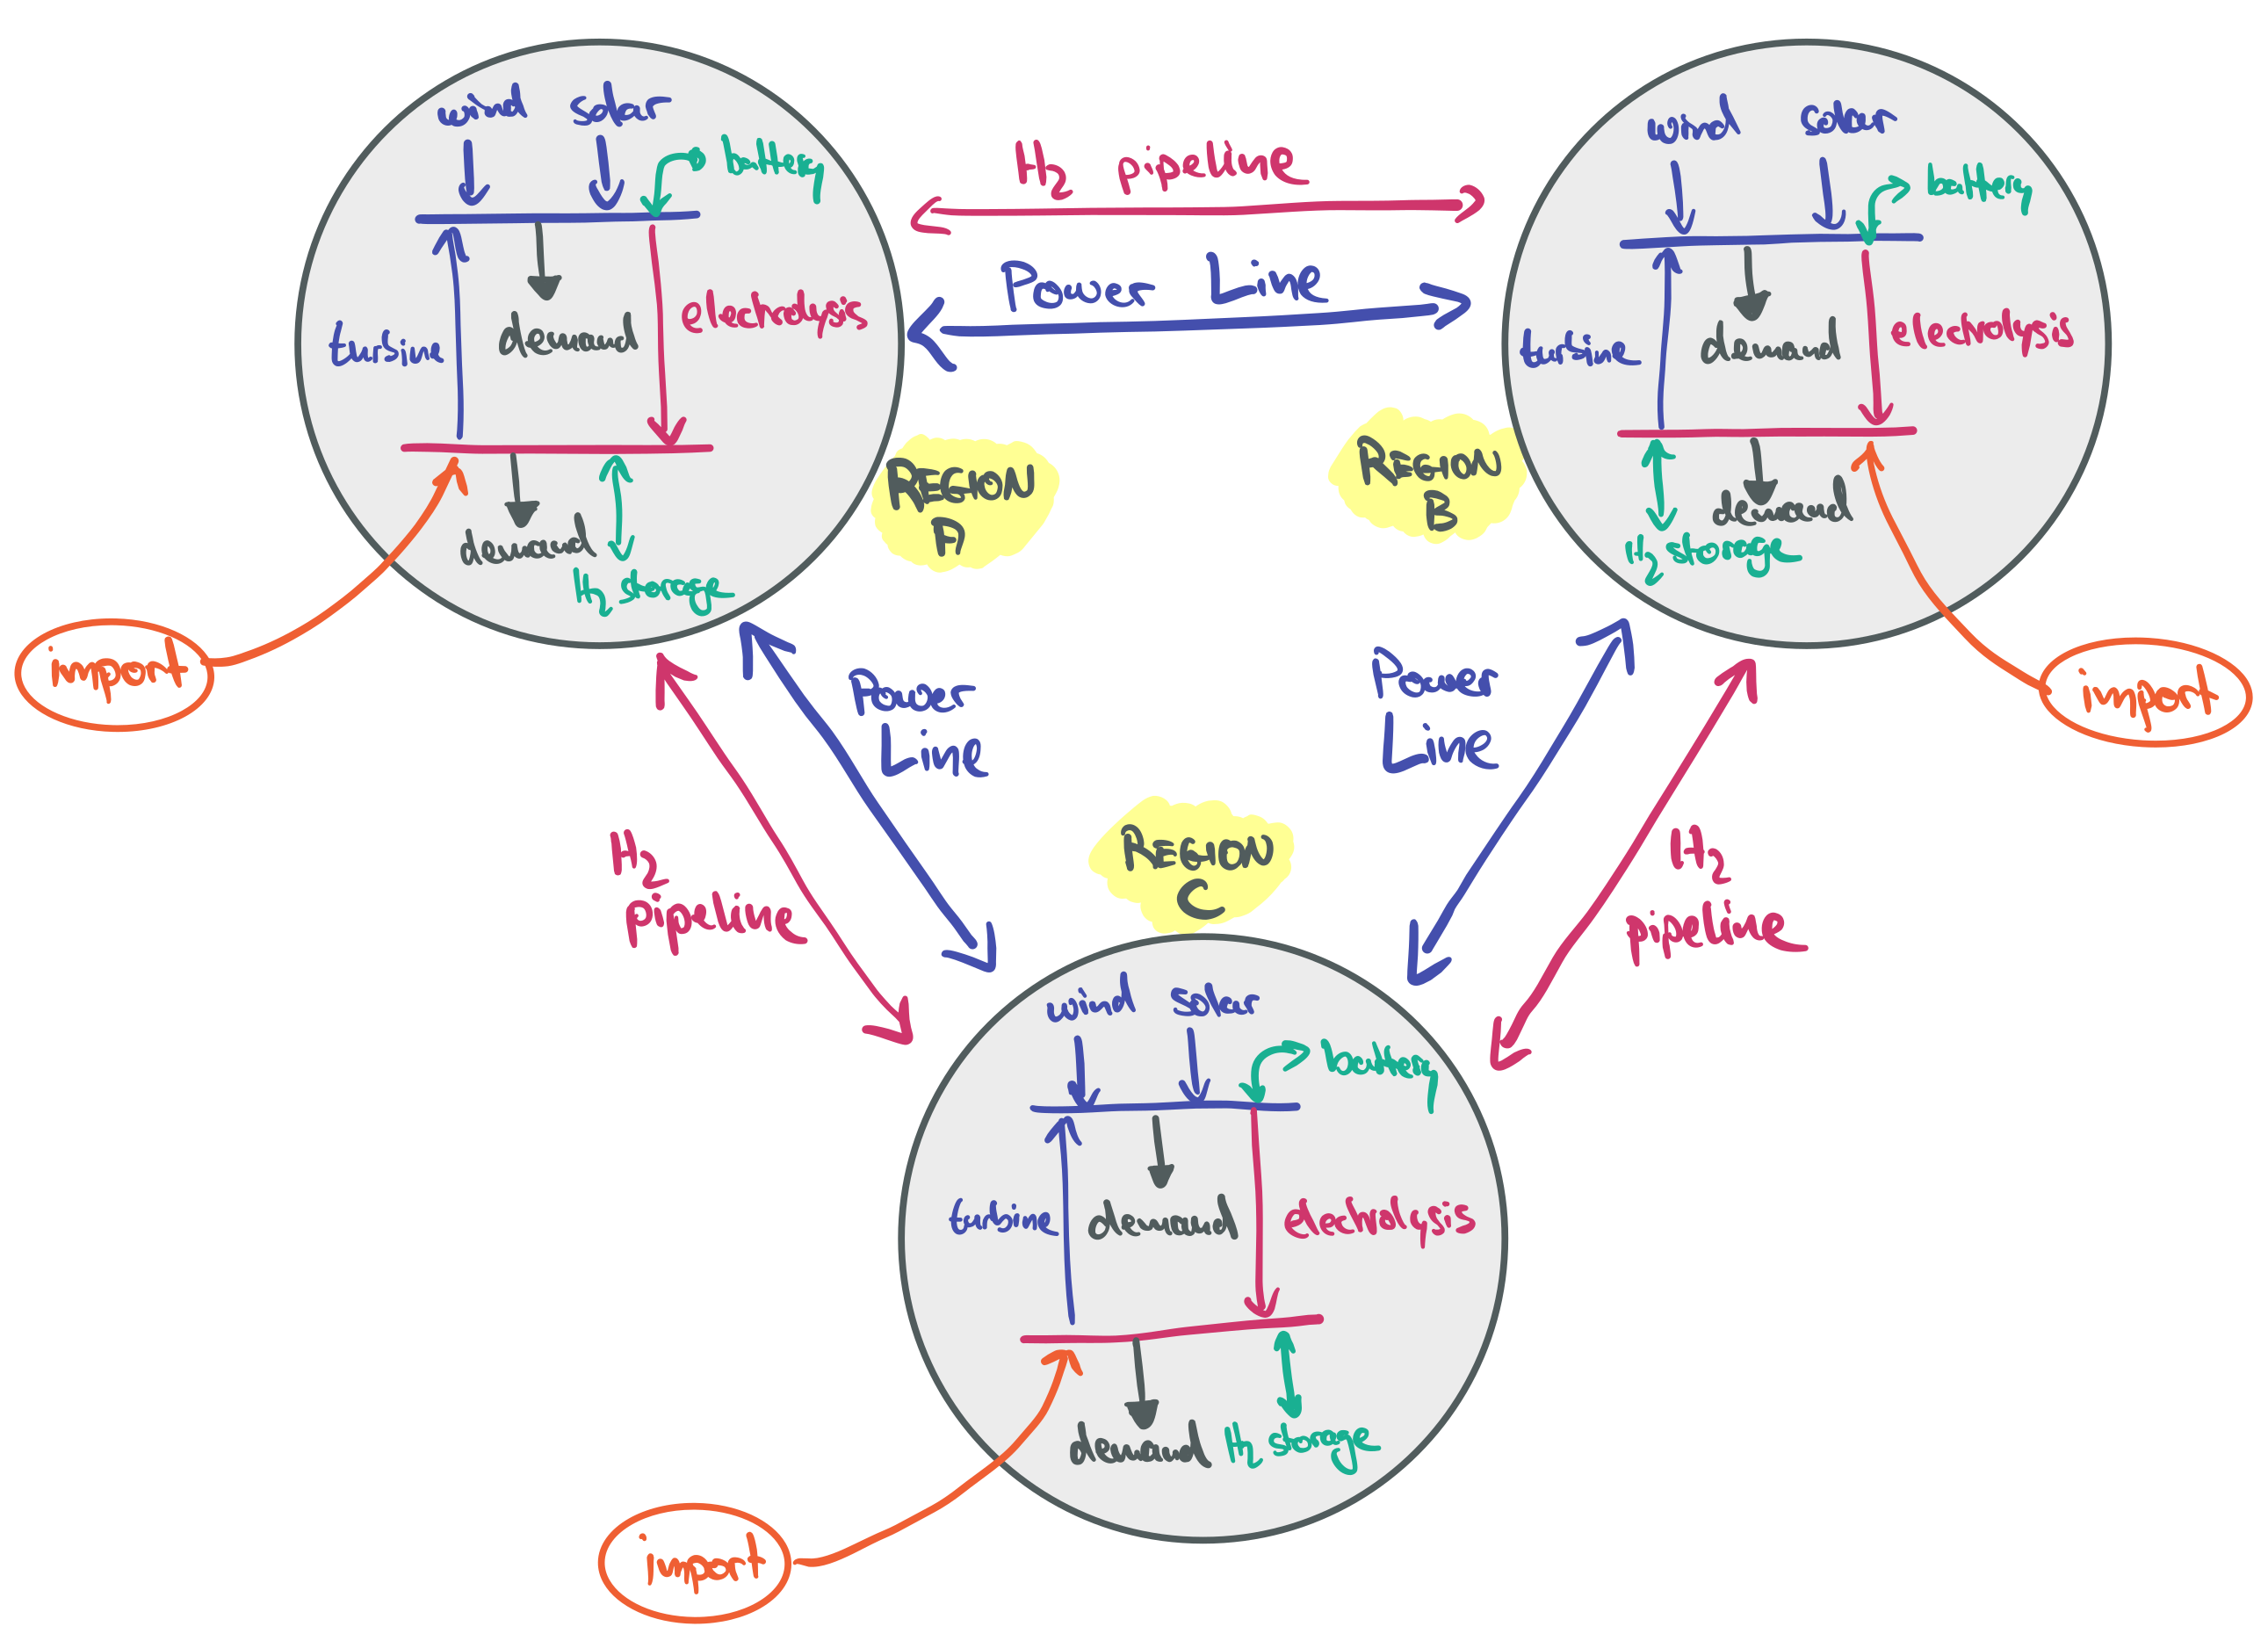 wind solar
battery
turbine
demand
electrolysis
demand
H2 storage
import
H2 pipeline
Power Line
REGION
A
REGION
B
wind solar
battery
turbine
demand
electrolysis
demand
H2 storage
import
Power
Line
H2
pipeline
Power
Line
H2
pipeline
REGION
C
wind solar
battery
turbine
demand
electrolysis
demand H2 storage
import